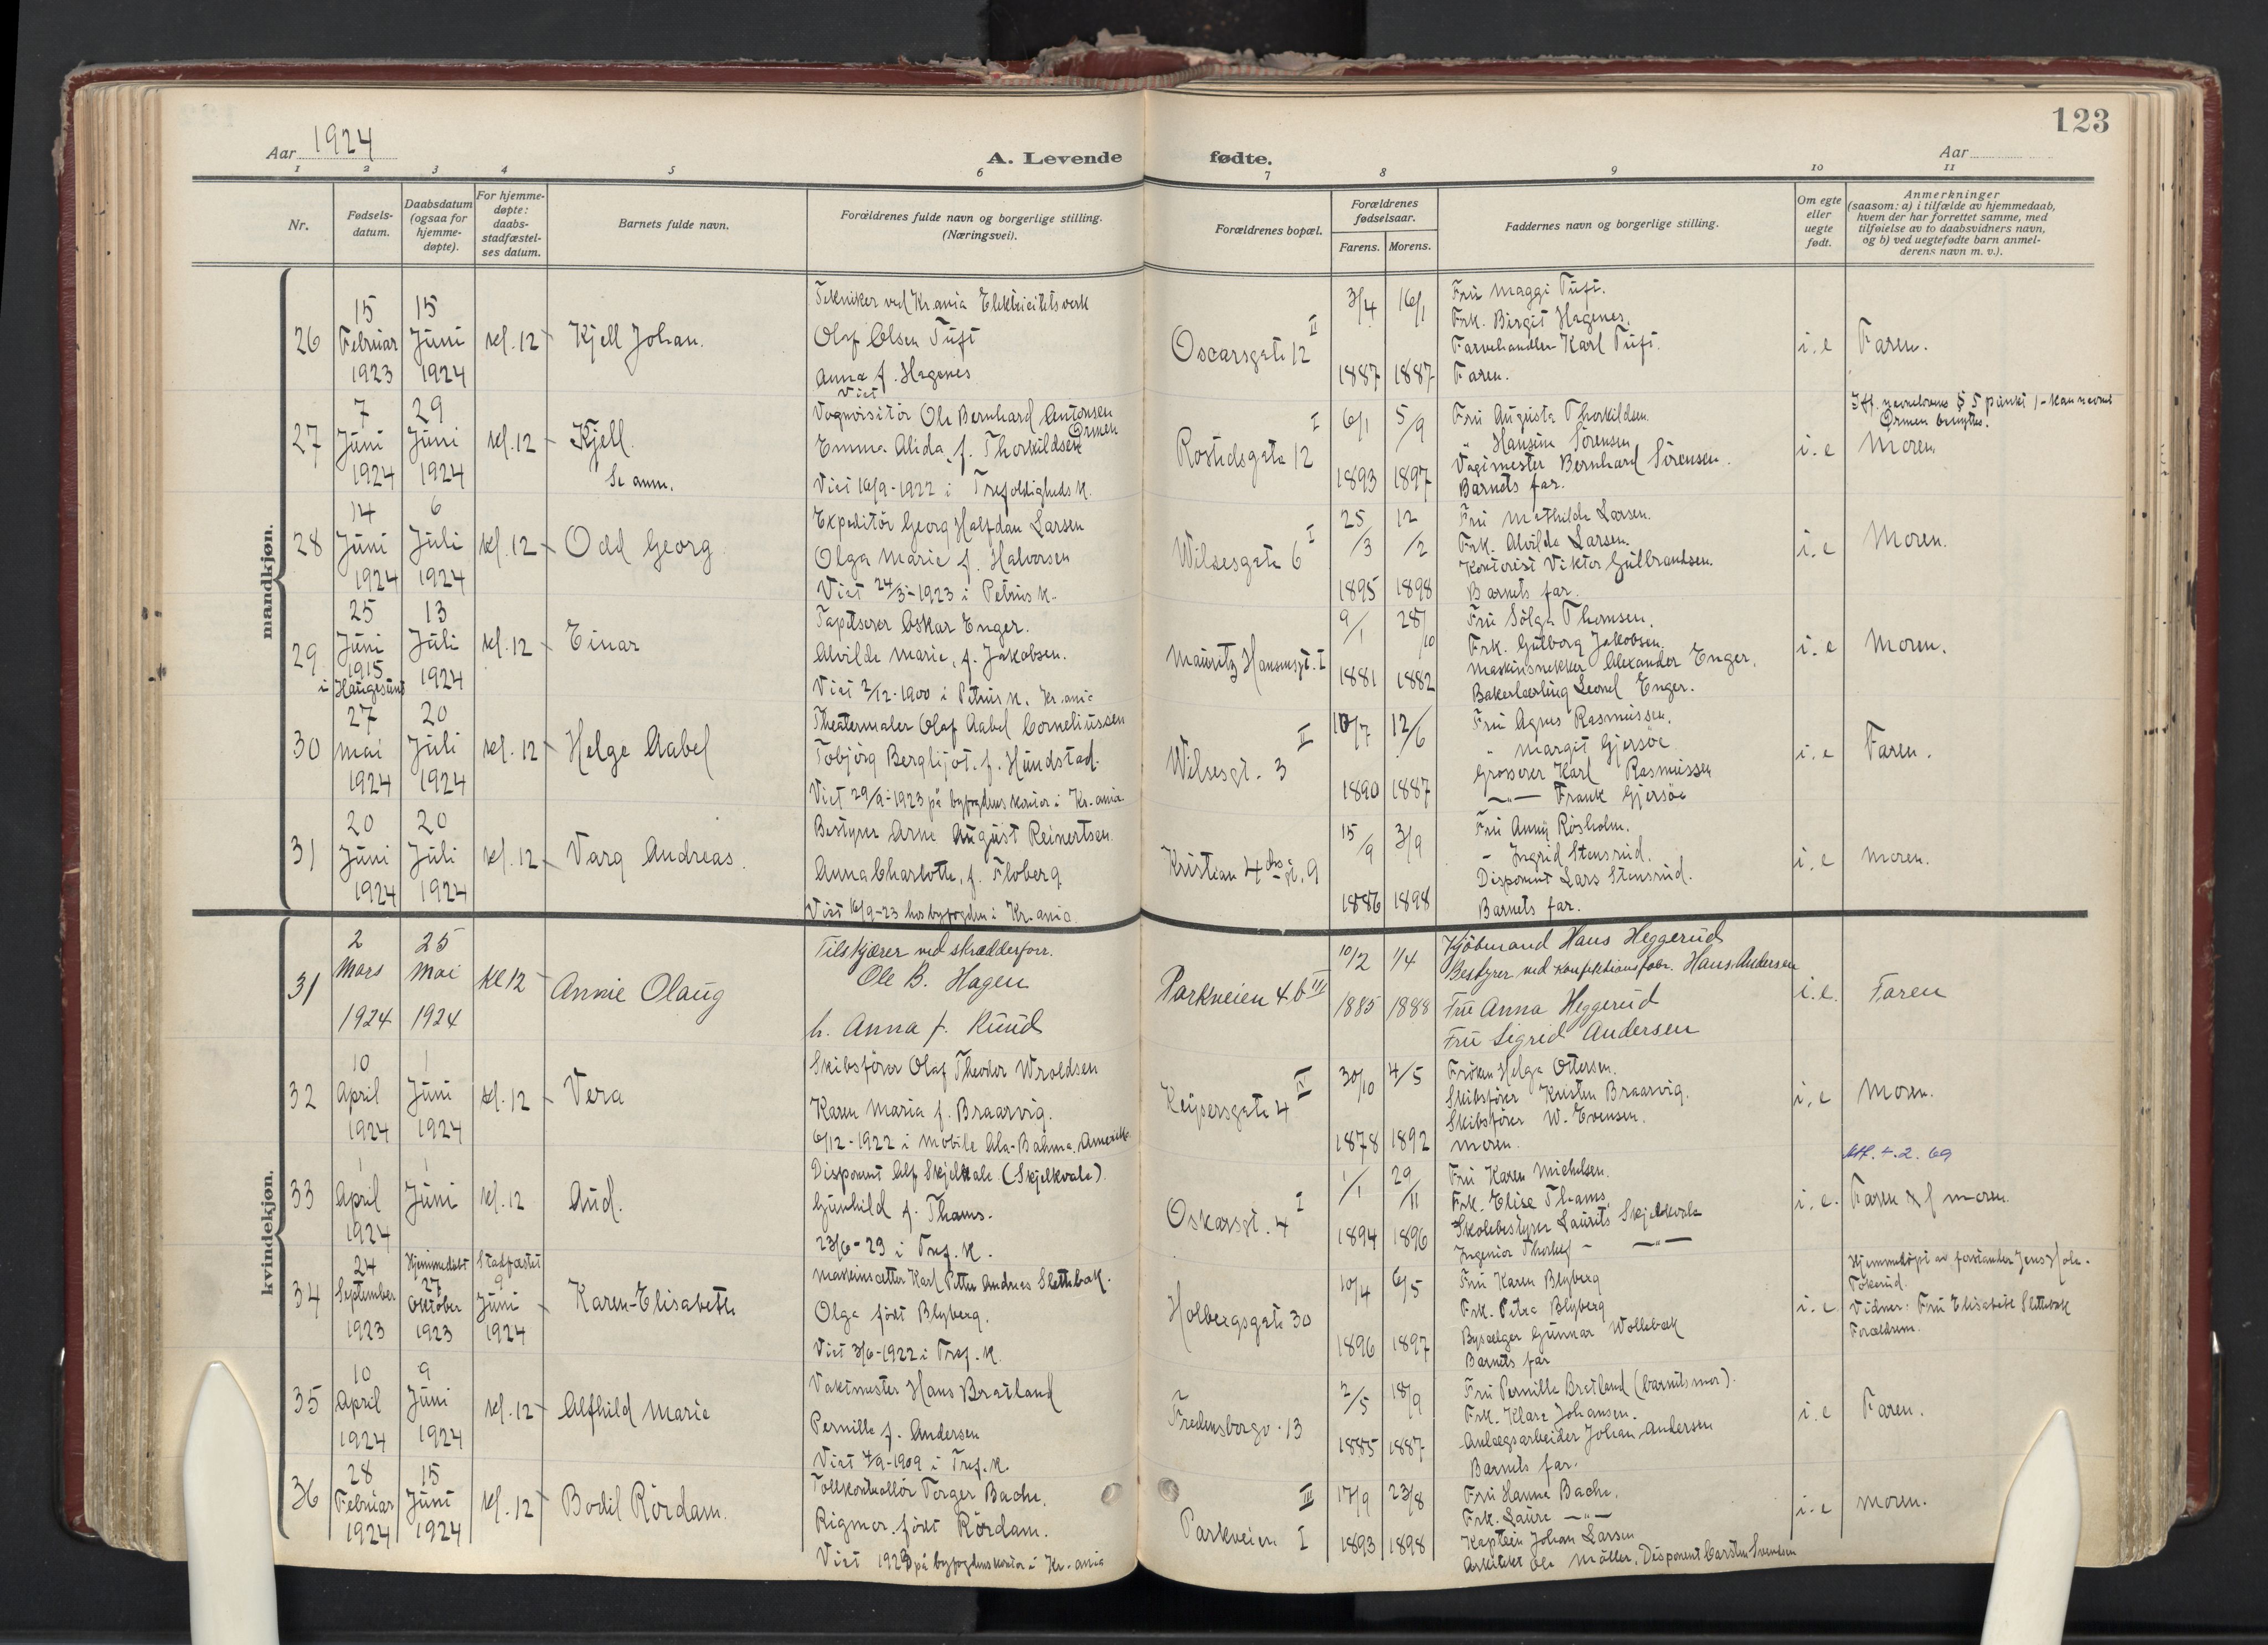 123
Aar 1924
A. Levende fødte.
Aar
1 2 3 4 5 6 7 8 9 10 11
Nr.
Fødsels-
datum.
Daabsdatum
(ogsaa for
hjemme-
døpte).
For hjemme-
døpte:
daabs-
stadfæstel-
ses datum.
Barnets fulde navn.
Forældrenes fulde navn og borgerlige stilling.
(Næringsvei).
Forældrenes bopæl.
Forældrenes
fødselsaar.
Farens. Morens.
Faddernes navn og borgerlige stilling.
Om egte
eller
uegte
født.
Anmerkninger
(saasom: a) i tilfælde av hjemmedaab,
hvem der har forrettet samme, med
tilføielse av to daabsvidners navn,
og b) ved uegtefødte barn anmel-
derens navn m. v.).
mandkjøn.
26
15
Februar
1923
15
Juni
1924
kl. 12
Kjell Johan.
Tekniker ved Kr.ania Elektricitetsverk
Olaf Olsen Tuft
Anna f. Hagenes
Viet
Oscarsgate 12 II
3/4 16/1
1887 1887
Fru Maggi Tuft.
Frk. Birgit Hagenes.
Farvehandler Karl Tuft.
Faren.
i. e
Faren.
27
7
Juni
1924
29
Juni
1924
kl. 12
Kjell.
Se anm.
Vognvisitør Ole Bernhard Antonsen
Ormen
Emma Alida, f. Thorkildsen
Viet 16/9-1922 i Trefoldigheds k.
Rostedsgate 12 I
6/1 5/9
1893 1897
Fru Augusta Thorkildsen.
" Hansine Sørensen
Vagtmester Bernhard Sørensen.
Barnets far.
i. e
Iflg. navnelovens § 5 punkt 1 - kan navnet
Ormen benyttes.
Moren
28
14
Juni
1924
6
Juli
1924
kl. 12
Odd Georg
Expeditør Georg Halfdan Larsen
Olga Marie f. Halvorsen
Viet 24/3-1923 i Petrus k.
Wilsesgate 6 I
25/3 12/2
1895 1898
Fru Mathilde Larsen.
Frk. Alvilde Larsen.
Kontorist Viktor Gulbrandsen.
Barnets far.
i. e
Moren.
29
25
Juni
1915
i Haugesund
13
Juli
1924
kl. 12
Einar
Tapetserer Oskar Enger.
Alvilde Marie, f. Jakobsen.
Viet 2/12-1900 i Petrus k. Kr.ania
Mauritz Hansensgt. I
9/1 28/10
1881 1882
Fru Solga Thomsen.
Frk. Gulborg Jakobsen.
Maskinsnekker Alexander Enger.
Bakerlærling Leonel Enger.
i. e
Moren.
30
27
Mai
1924
20
Juli
1924
kl. 12
Helge Aabel
Theatermaler Olaf Aabel Corneliussen
Tobjørg Bergljot. f. Hundstad.
Viet 29/9-1923 på byfogdens kontor i Kr.ania
Wilsesgt. 3 II
10/7 12/6
1890 1887
Fru Agnes Rasmussen.
" Margit Gjersøe
Grosserer Karl Rasmussen
—"— Frank Gjersøe
i. e
Faren.
31
20
Juni
1924
20
Juli
1924
kl. 12
Varg Andreas.
Bestyrer Arne August Reinertsen
Anna Charlotte, f. Floberg
Viet 16/9-23 hos byfogden i Kr.ania.
Kristian 4des gt. 9
15/9 3/9
1886 1898
Fru Anny Rosholm.
- Ingrid Stensrud.
Disponent Lars Stensrud.
Barnets far.
i. e
Moren.
kvindekjøn.
31
2
Mars
1924
25
Mai
1924
kl 12
Annie Olaug
Tilskjærer ved skrædderforr.
Ole B. Hagen
h. Anna f. Ruud
Parkveien 4 b III
10/2 1/4
1885 1888
Kjøbmand Hans Heggerud
Bestyrer ved Konfektionsfabr. Hans Andersen
Fru Anna Heggerud
Fru Sigrid Andersen
i. e.
Faren
32
10
April
1924
1
Juni
1924
kl. 12
Vera
Skibsfører Olaf Theodor Wroldsen
Karen Maria f. Braarvig.
6/12-1922 i Mobile Ala-Bahma. Amerika
Keysersgate 4 IV
30/10 4/5
1878 1892
Frøken Helga Ottersen.
Skibsfører Kristen Braarvig.
Skibsfører W. Evensen.
Moren.
i. e
Moren.
33
1
April
1924
1
Juni
kl. 12
Aud.
Disponent Alf Skjelkale (Skjelkvale).
Gunhild f. Thams.
23/6-23 i Tref. k.
Oskarsgt. 4 I
1/1 29/11
1894 1896
Fru Karen Michelsen.
Frk. Elise Thams
Skolebestyrer Laurits Skjelkvale
Ingeniør Thorleif - —"—
i. e.
4.2.69
Faren & moren.
34
24
September
1923
Hjemmedøbt
27
Oktober
1923
Stadfæstet
9
Juni
1924
Karen-Elisabeth
Maskinsætter Karl Petter Andreas Slettebak.
Olga født Blyberg.
Viet 3/6-1922 i Tref. k.
Holbergsgate 30
10/4 6/5
1896 1897
Fru Karen Blyberg
Frk. Petra Blyberg
Bysælger Gunnar Wollebæk
Barnets far
i. e
Hjemmedøpt av forstander Jens Hole-
Tokerud.
Vidner: Fru Elisabeth Slettebak
Forældrene.
35
10
April
1924
9
Juni
1924
kl. 12
Alfhild Marie
Vaktmester Hans Bratland
Pernille f. Andersen
Viet 4/9-1909 i Tref. k.
Fredensborgv. 13
2/5 18/9
1885 1887
Fru Pernille Bratland (barnets mor).
Frk. Klara Johansen.
Anlægsarbeider Johan Andersen
Barnets far.
i. e
Faren.
36
28
Februar
1924
15
Juni
1924
kl. 12
Bodil Rördam.
Tollkontrollør Torger Bache.
Rigmor. født Rördam.
Viet 1923 på byfogdens kontor i Kr.ania
Parkveien I III
17/9 23/8
1893 1898
Fru Hanna Bache.
Frk. Laura —"—
Kaptein Johan Larsen
Arkitekt Ole Møller, Disponent Carsten Svendsen
i. e
Moren.